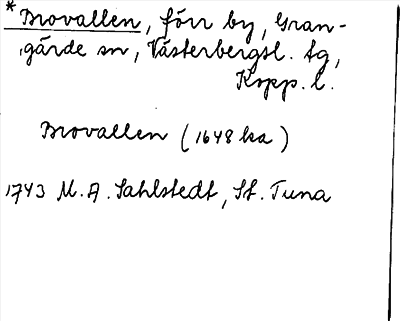 *Brovallen, förr by, Gran-
gärde sn, Västerbergsl. tg,
Kopp. l.
Brovallen (1648 ka)
1743 M. A. Sahlstedt, St. Tuna